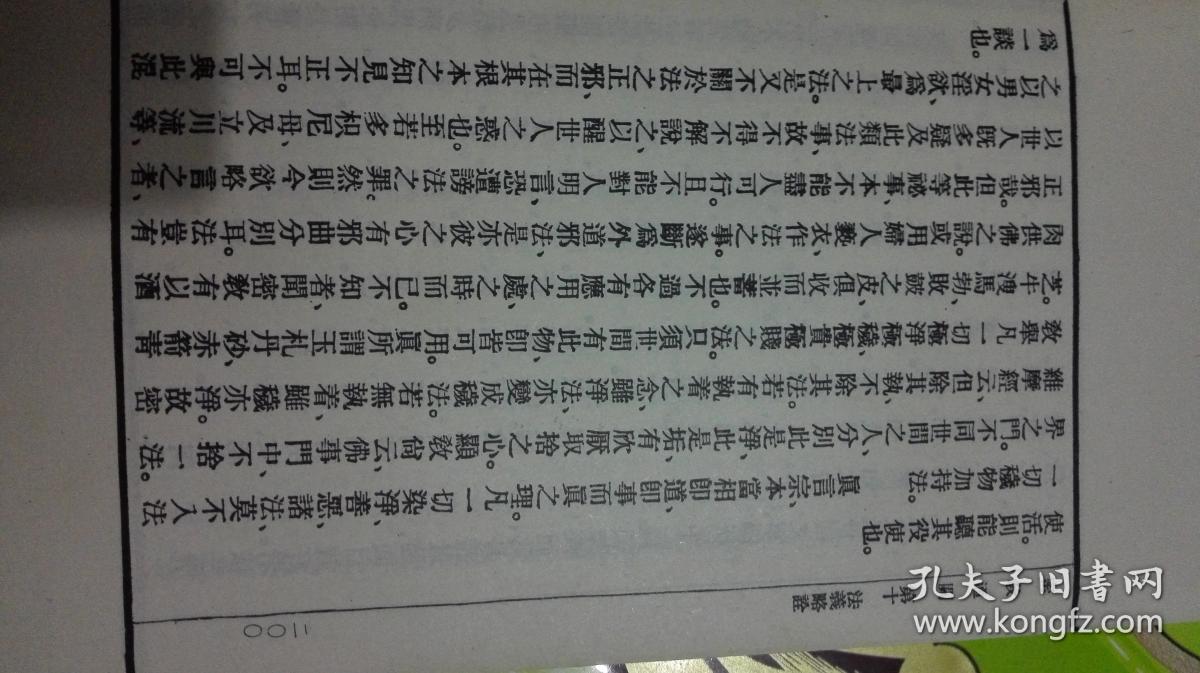 法義略詮
第十
1100
使活。則能聽其役使也。
一切穢物加持法。 眞言宗本當相卽道、卽事而眞之理。凡一切染淨善惡諸法、莫不入法
界之門。不同世間之人、分別此是淨、此是垢、有欣厭取捨之心。顯教尙云、佛事門中不捨一法。
維摩經云、但除其執、不除其法。若有執着之念、雖淨法亦變成穢法。若無執着、雖穢亦淨。故密
教舉凡一切極淨極穢、極貴極賤之法。只須世間有此物、卽皆可用。眞所謂玉札丹砂、赤箭青
芝、牛溲馬勃、敗皷之皮、俱收而並蓄也。不過各有應用之處、之時而已。不知者、聞密教有以酒
肉供佛之說。或用婦人褻衣、作法之事。遂斷爲外道邪法。是亦彼之心有邪曲分別耳。法豈有
正邪哉。但此等祕事、本不能盡人可行。且不能對人明言、恐遭謗法之罪。然則今欲略言之者、
以世人旣多疑及此類法事、故不得不解說之、以醒世人之惑也。至若多枳尼母、及立川流等、
之以男女淫欲、爲最上之法。是又不關於法之正邪、而在其根本之知見不正耳。不可與此混
爲一談也。
孔夫子旧书网
www.kongfz.com